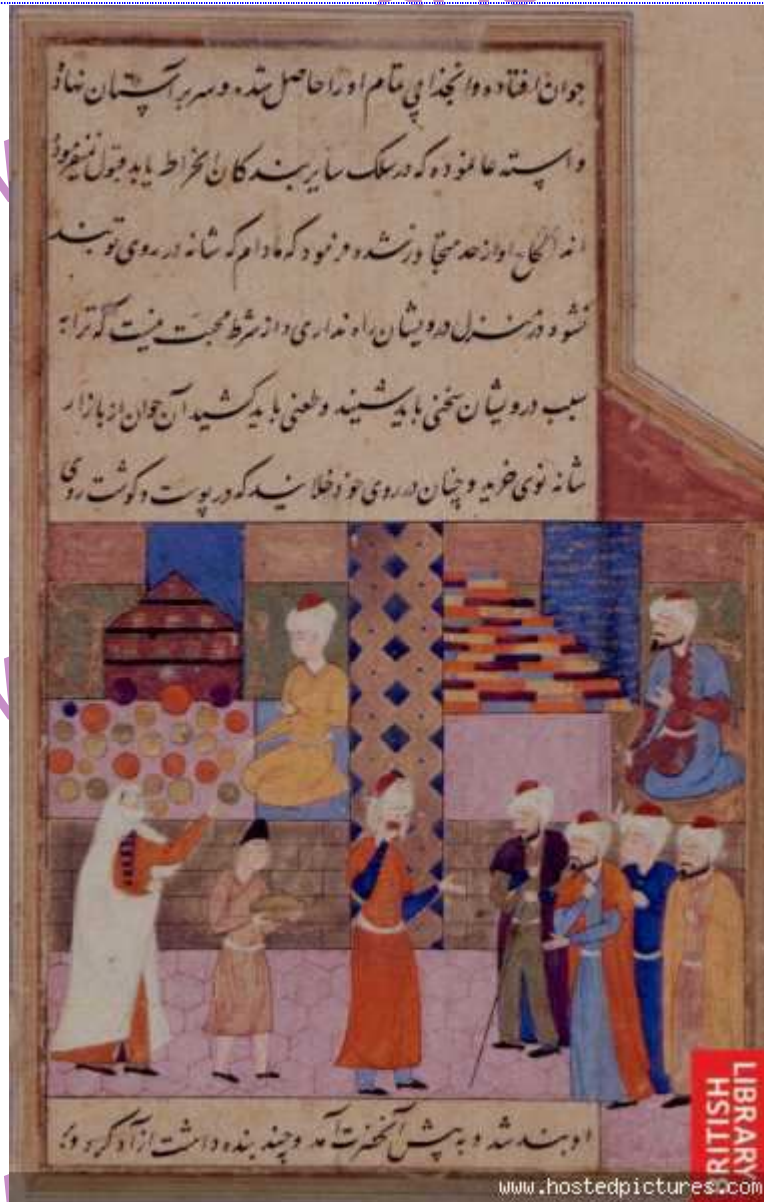 جوان افتاده و انجذابی تمام او را حاصل شده و سر بر آستان نهاده
عالم نموده که در سلک سایر بندکان انخراط یابد قبول نمیفرموده
اند او از حد متجاوز شده فرمود که مادام که شانه در روی تو بند
نشود در منزل درویشان راه نداری و از شرط محبت نیست که ترا به
سبب درویشان سخنی باید شنیند و طعنی باید کشید آن جوان از بازار
شانه نوی خرید و چنان در روی خود خلانید که در پوست و کوشت روی
او بند شد و به پیش آنحضرت آمد و چند بنده داشت آزاد کرد و
BRITISH
LIBRARY
www.hostedpictures.com